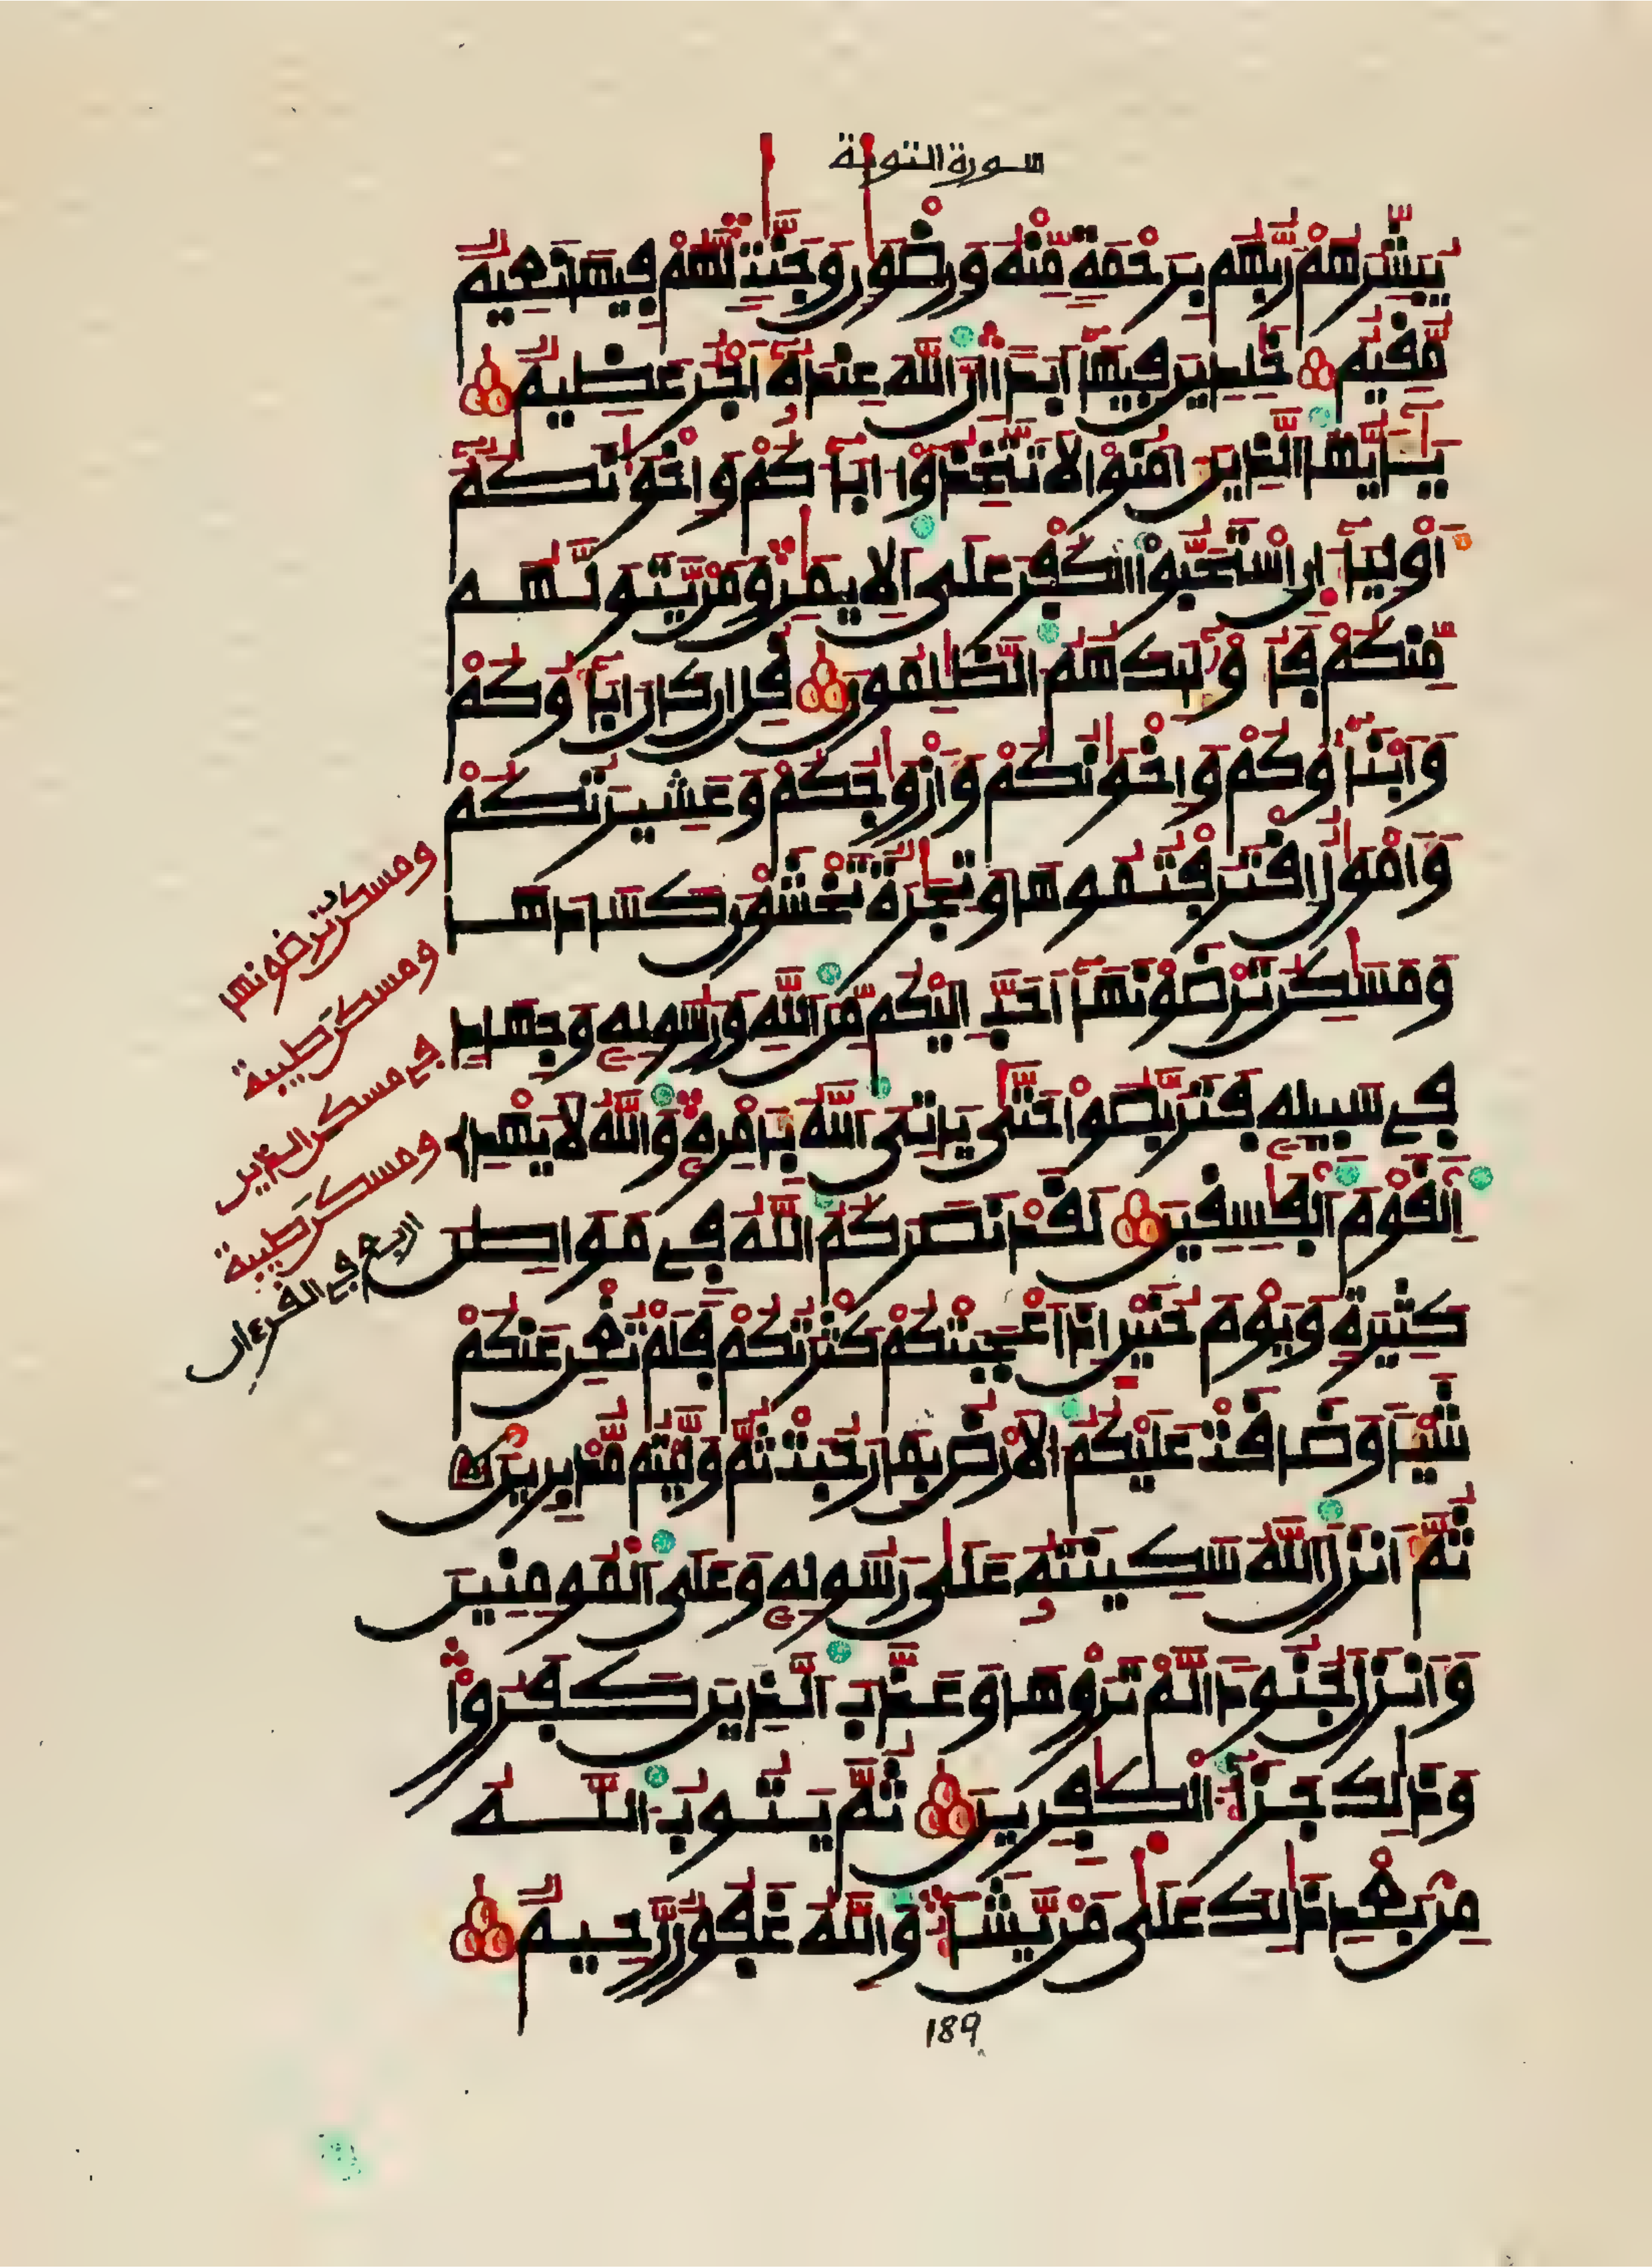 سورة التوبة
يُبَشِّرُهُمْ رَبُّهُم بِرَحْمَةٍ مِّنْهُ وَرِضْوَٰنٍ وَجَنَّٰتٍ لَّهُمْ فِيهَا نَعِيمٌ
مُّقِيمٌ خَٰلِدِينَ فِيهَآ أَبَدًا اِنَّ اَللَّهَ عِندَهُۥٓ أَجْرٌ عَظِيمٌ
يَٰٓأَيُّهَا اَلذِينَ ءَامَنُواْ لَا تَتَّخِذُوٓاْ ءَابَآءَكُمْ وَإِخْوَٰنَكُمُۥٓ
أَوْلِيَآءَ اِنِ اِسْتَحَبُّواْ اُلْكُفْرَ عَلَى اَلِايمَٰنِ وَمَنْ يَّتَوَلَّهُم
مِّنكُمْ فَأُوْلَٰٓئِكَ هُمُ اُلظَّٰلِمُونَ قُلِ اِن كَانَ ءَابَآؤُكُمْ
وَأَبْنَآؤُكُمْ وَإِخْوَٰنُكُمْ وَأَزْوَٰجُكُمْ وَعَشِيرَتُكُمْ
وَأَمْوَٰلٌ اِقْتَرَفْتُمُوهَا وَتِجَٰرَةٌ تَخْشَوْنَ كَسَادَهَا
وَمَسَٰكِنُ تَرْضَوْنَهَآ أَحَبَّ إِلَيْكُم مِّنَ اَللَّهِ وَرَسُولِهِۦ وَجِهَادٍ
فِے سَبِيلِهِۦ فَتَرَبَّصُواْ حَتَّىٰ يَاتِيَ اَللَّهُ بِأَمْرِهِۦ وَاللَّهُ لَا يَهْدِے
اِلْقَوْمَ اَلْفَٰسِقِينَ لَقَدْ نَصَرَكُمُ اُللَّهُ فِے مَوَاطِنَ
كَثِيرَةٍ وَيَوْمَ حُنَيْنٍ اِذَ اَعْجَبَتْكُمْ كَثْرَتُكُمْ فَلَمْ تُغْنِ عَنكُمْ
شَيْـًٔا وَضَاقَتْ عَلَيْكُمُ اُلَارْضُ بِمَا رَحُبَتْ ثُمَّ وَلَّيْتُم مُّدْبِرِينَ
ثُمَّ أَنزَلَ اَللَّهُ سَكِينَتَهُۥ عَلَىٰ رَسُولِهِۦ وَعَلَى اَلْمُومِنِينَ
وَأَنزَلَ جُنُودًا لَّمْ تَرَوْهَا وَعَذَّبَ اَلذِينَ كَفَرُواْ
وَذَٰلِكَ جَزَآءُ اُلْكَٰفِرِينَ ثُمَّ يَتُوبُ اُللَّهُ
مِنۢ بَعْدِ ذَٰلِكَ عَلَىٰ مَنْ يَّشَآءُ وَاللَّهُ غَفُورٌ رَّحِيمٌ
ومسكن ترضونها
ومسكن طيبة
في مسكن الذين
ومسكن طيبة
اربع في القرءان
189